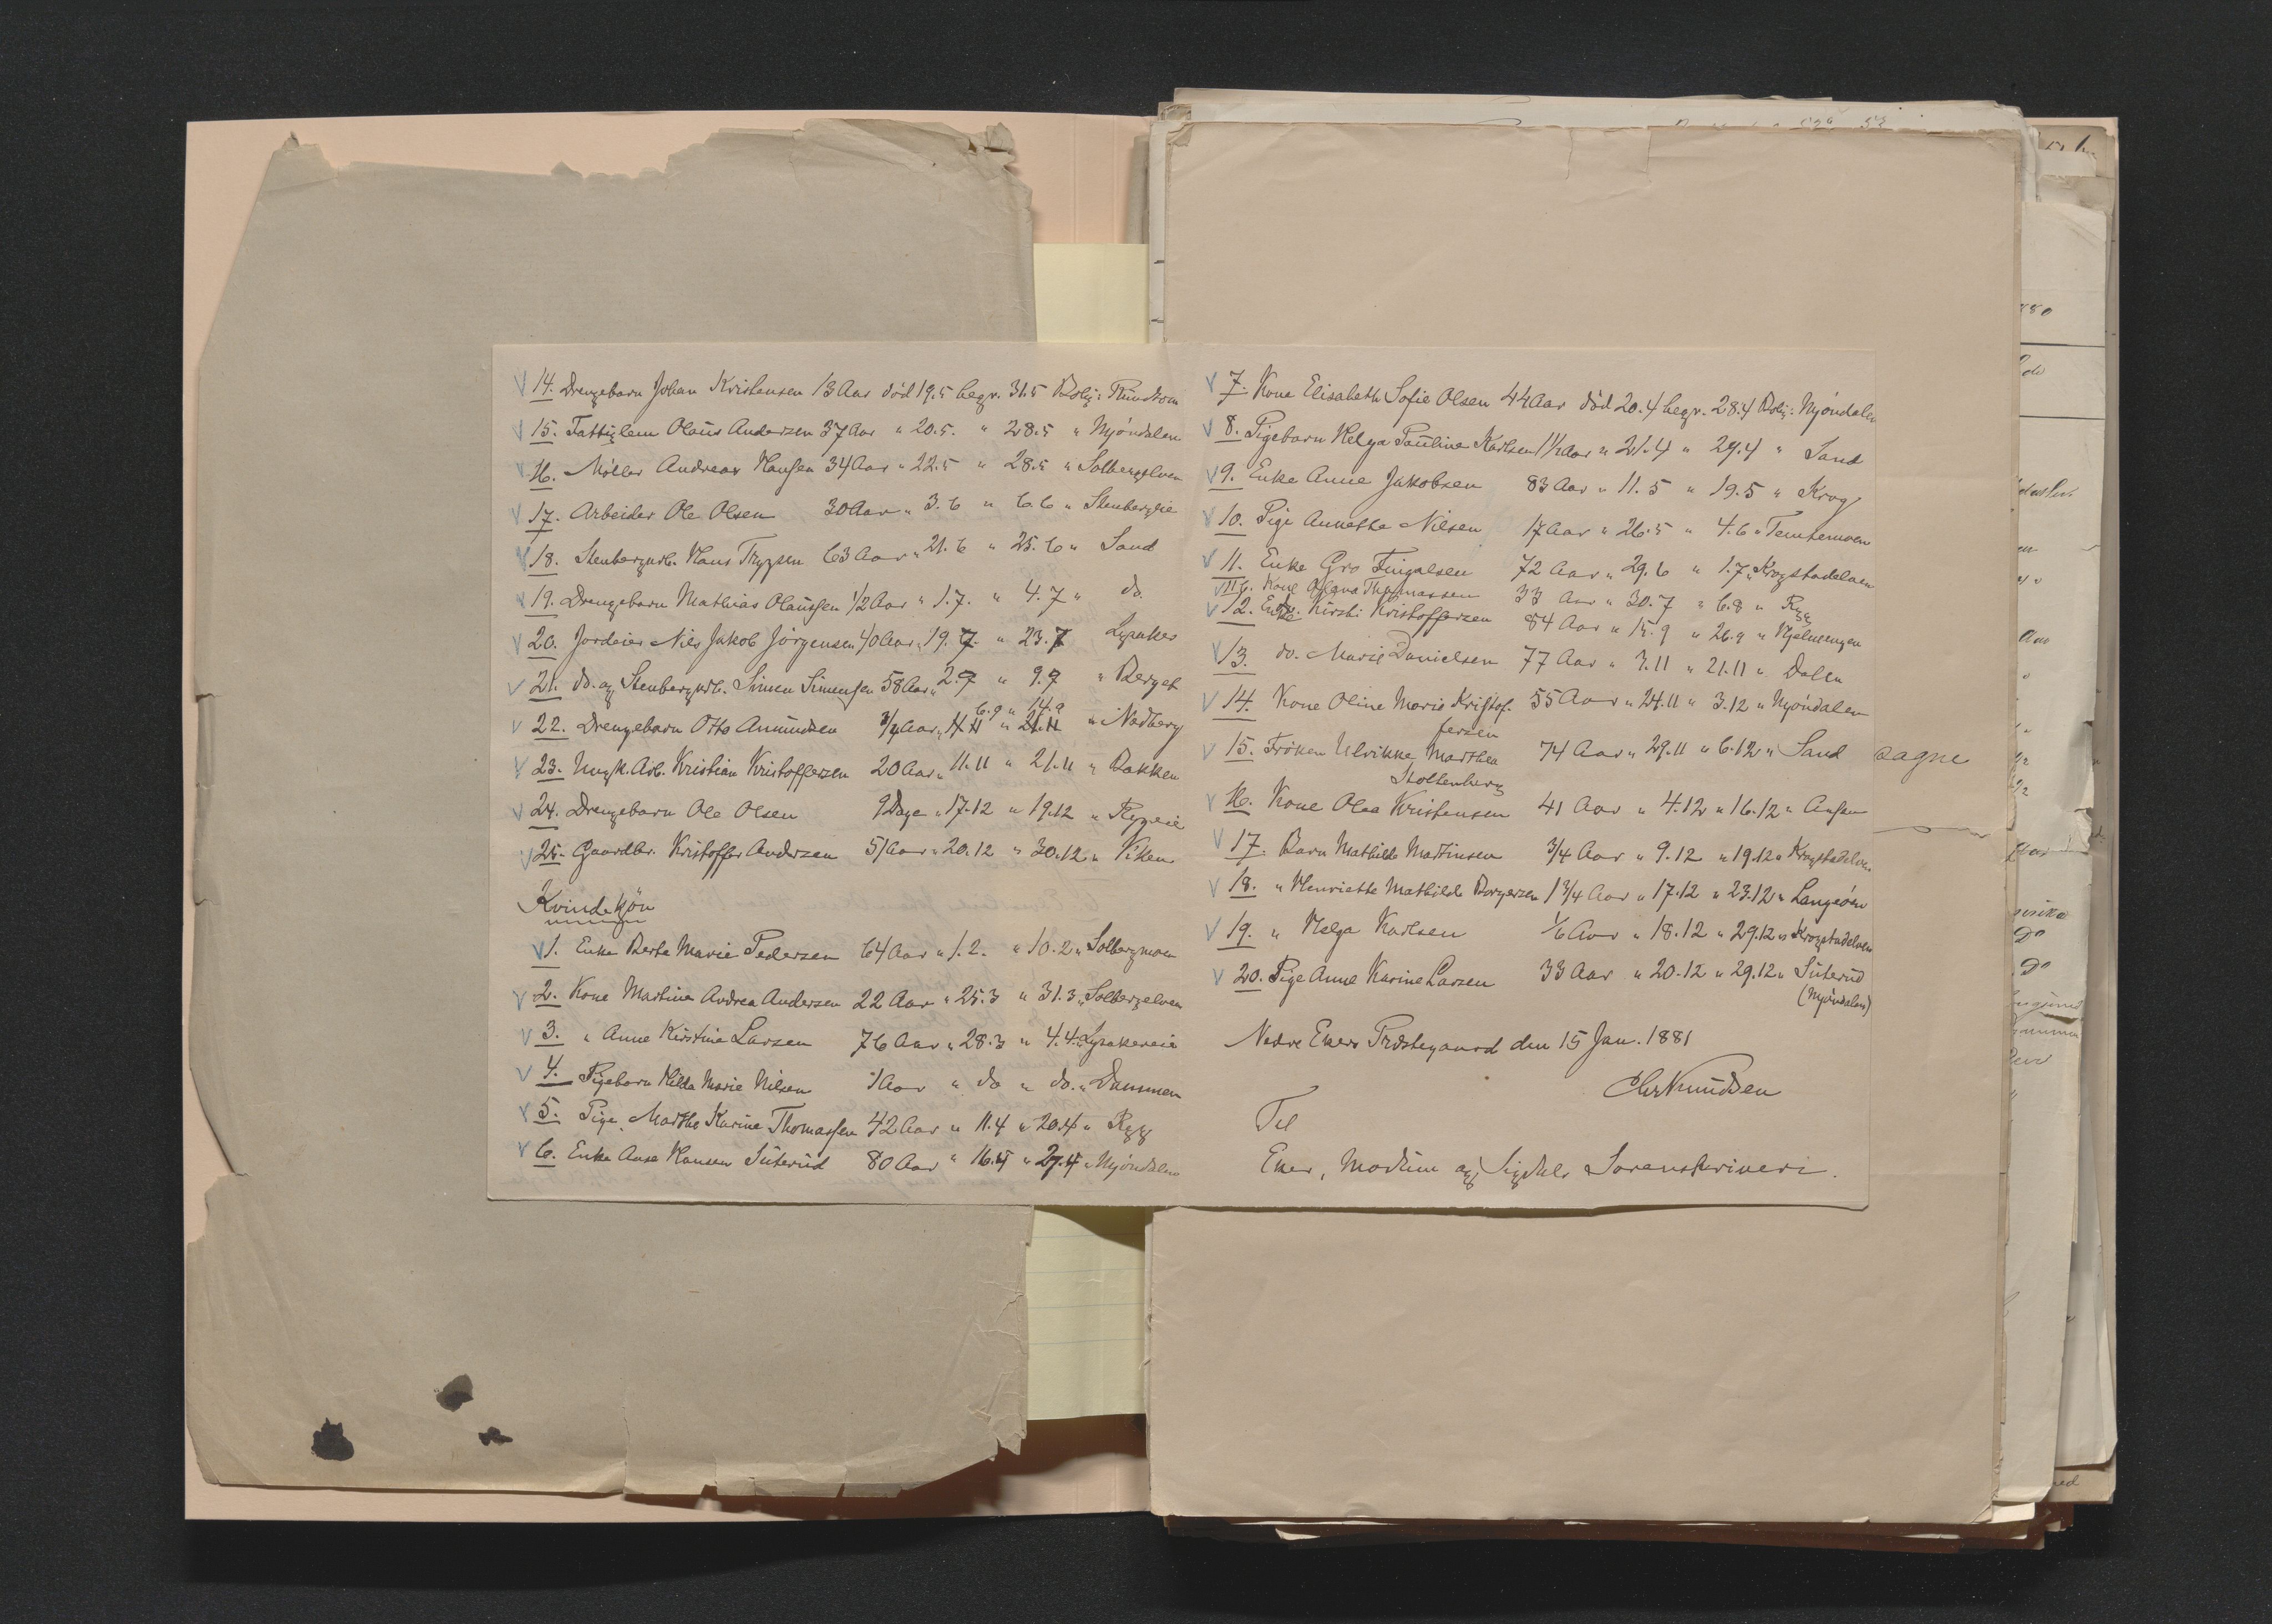 14. Drengebarn Johan Kristensen 13 Aar död 19.5 begr. 31.5 Bolig:
15. Fattiglem Olaus Andersen 37 Aar " 20.5. " 28.5 " Mjöndalen
16. Möller Andreas Hansen 34 Aar " 22.5 " 28.5 " Solbergelven
17. Arbeider Ole Olsen 30 Aar " 3.6 " 6.6 " Stenbergeie
18. Hans Trygsen 63 Aar " 21.6 " 25.6 " Sand
19. Drengebarn Mathias Olaussen 1/2 Aar " 1.7. " 4.7 " do.
20. Jordeier Nils Jakob Jörgensen 40 Aar " 19.7. " 23.7 Lysaker
21. do. og Simen Simensen 58 Aar " 2.9 " 9.9 " Berget
22. Drengebarn Otto Amundsen 3/4 Aar " 6.9 " 14.9 " Nedberg
23. Ungk. Arb. Kristian Kristoffersen 20 Aar " 11.11 " 21.11 " Bakken
24. Drengebarn Ole Olsen 9 Dage " 17.12 " 19.12 " Ryggeie
25. Gaardbr. Kristoffer Andersen 51 Aar " 20.12 " 30.12 " Viken
Kvindekjön
1. Enke Berte Marie Pedersen 64 Aar " 1.2. " 10.2 " Solbergmoen
2. Kone Martine Andrea Andersen 22 Aar " 25.3 " 31.3 " Solbergelven
3. " Anne Kirstine Larsen 76 Aar " 28.3 " 4.4 " Lysakereie
4. Pigebarn Hilda Marie Nilsen 1 Aar " do " do. " Dammen
5. Pige Marthe Karine Thomassen 42 Aar " 11.4 " 20.4 " Rygg
6. Enke Aase Hansen Suterud 80 Aar " 16.4 " 27.4 " Mjöndalen
7. Kone Elisabeth Sofie Olsen 44 Aar död 20.4 begr. 28.4 Bolig: Mjöndalen
8. Pigebarn Helga Pauline Karlsen 1 1/2 Aar " 21.4 " 29.4 " Sand
9. Enke Anne Jakobsen 83 Aar " 11.5 " 19.5 " Krog
10. Pige Annette Nilsen 17 Aar " 26.5 " 4.6 " Temtemoen
11. Enke Gro Fingalsen 72 Aar " 29.6 " 1.7 " Krogstadelven
11b. Kone Olava Thomassen 33 Aar " 30.7 " 6.8 " Rygg
12. Enke Kirsti Kristoffersen 84 Aar " 15.9 " 26.9 " Hjelmengen
13. do. Marie Danielsen 77 Aar " 7.11 " 21.11 " Dalen
14. Kone Oline Marie Kristof-
fersen 55 Aar " 24.11 " 3.12 " Mjöndalen
15. Fröken Ulrikke Marthea
Stoltenberg 74 Aar " 29.11 " 6.12 " Sand
16. Kone Olea Kristensen 41 Aar " 4.12 " 16.12 "
17. Barn Mathilde Martinsen 3/4 Aar " 9.12 " 19.12 " Krogstadelven
18. " Henriette Mathilde Borgersen 1 3/4 Aar " 17.12 " 23.12 " Langeöen
19. " Helga Karlsen 1/6 Aar " 18.12 " 29.12 " Krogstadelven
20. Pige Anne Karine Larsen 33 Aar " 20.12 " 29.12 " Suterud
(Mjöndalen)
Nedre Ekers Præstegaard den 15 Jan. 1881
Chr Knudsen
Til
Eker, Modum og Sigdals Sorenskriveri.